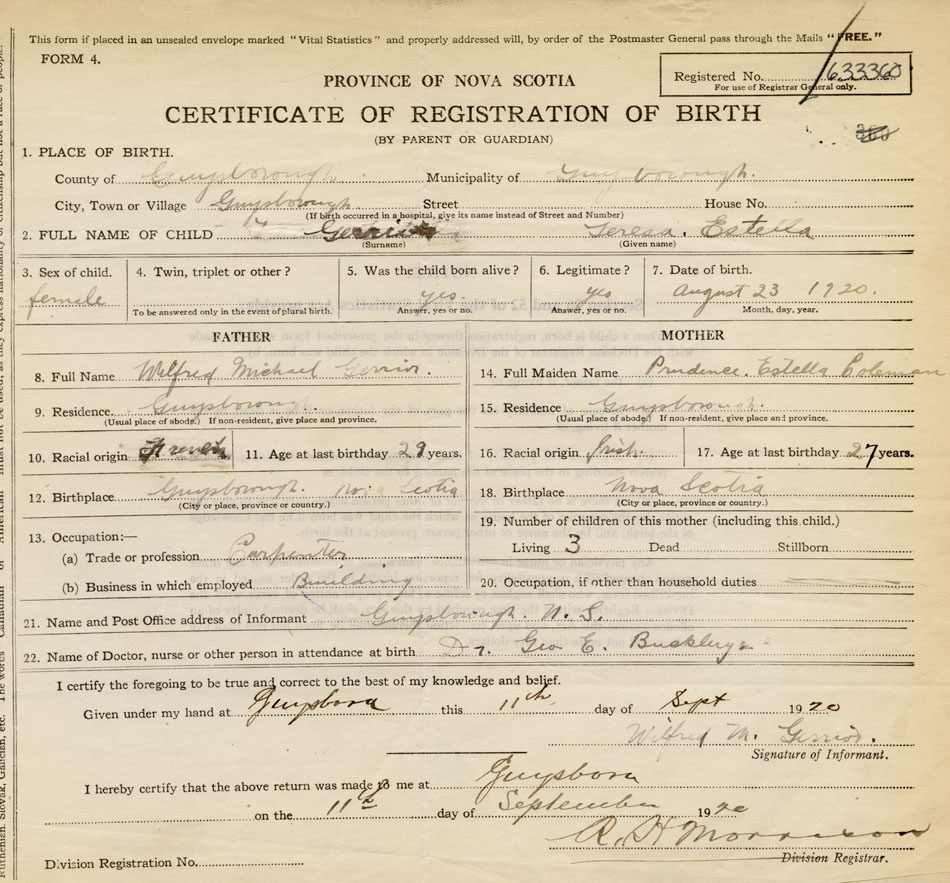 This form if placed in an unsealed envelope marked "Vital Statistics" and properly addressed will, by order of the Postmaster General pass through the Mails "FREE."
FORM 4.
Registered No. 633360
For use of Registrar General only.
PROVINCE OF NOVA SCOTIA
CERTIFICATE OF REGISTRATION OF BIRTH
(BY PARENT OR GUARDIAN)
1. PLACE OF BIRTH.
County of Guysborough Municipality of Guysborough.
City, Town or Village Guysborough Street House No.
(If birth occurred in a hospital, give its name instead of Street and Number)
2. FULL NAME OF CHILD Gerrior Teresa. Estella
(Surname) (Given name)
3. Sex of child. 4. Twin, triplet or other? 5. Was the child born alive? 6. Legitimate? 7. Date of birth.
female yes. yes August 23 1920.
To be answered only in the event of plural birth. Answer, yes or no. Answer, yes or no. Month, day, year.
FATHER
8. Full Name Wilfred Michael Gerrior.
9. Residence. Guysborough.
(Usual place of abode.) If non-resident, give place and province.
10. Racial origin French 11. Age at last birthday 29 years.
12. Birthplace Guysborough. Nova Scotia
(City or place, province or country.)
13. Occupation:—
(a) Trade or profession Carpenter
(b) Business in which employed Building
MOTHER
14. Full Maiden Name Prudence. Estella Coleman
15. Residence Guysborough.
(Usual place of abode) If non-resident, give place and province.
16. Racial origin Irish. 17. Age at last birthday 27 years.
18. Birthplace Nova Scotia
(City or place, province or country.)
19. Number of children of this mother (including this child.)
Living 3 Dead Stillborn
20. Occupation, if other than household duties
21. Name and Post Office address of Informant Guysborough. N. S.
22. Name of Doctor, nurse or other person in attendance at birth Dr. Geo E. Buckley
I certify the foregoing to be true and correct to the best of my knowledge and belief.
Given under my hand at Guysboro this 11th day of Sept 1920
Wilfred M. Gerrior.
Signature of Informant.
I hereby certify that the above return was made to me at Guysboro
on the 11th day of September 1920
R. H. Morrison
Division Registrar.
Division Registration No.